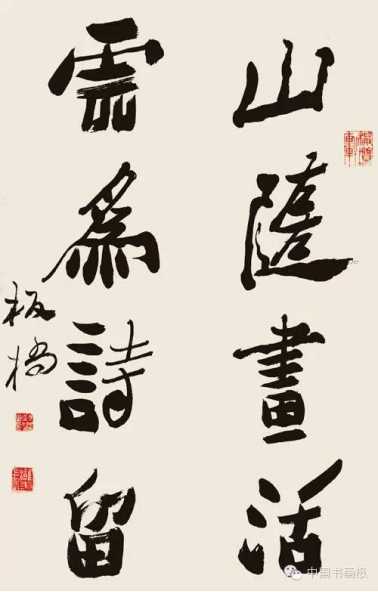 山隨畫活
雲為詩留
板橋
中国书画报